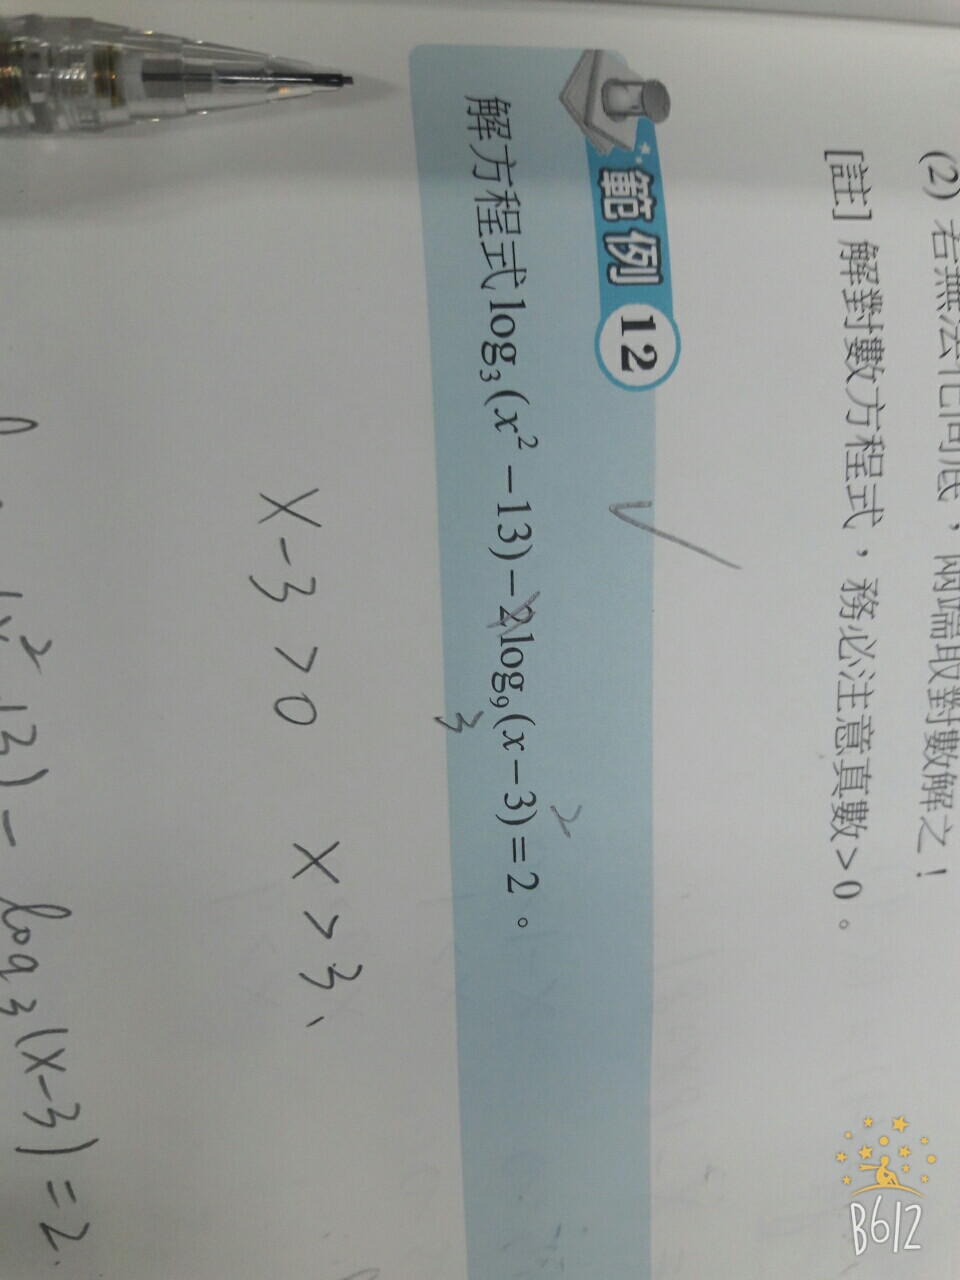 (2) 若無法化同底，兩端取對數解之！
[註] 解對數方程式，務必注意真數>0。
範例 12
解方程式log₃(x²－13)－2log₉(x－3)＝2。
3
2
x-3>0 x>3、
(x²-13)- log₃(x-3)=2.
B612